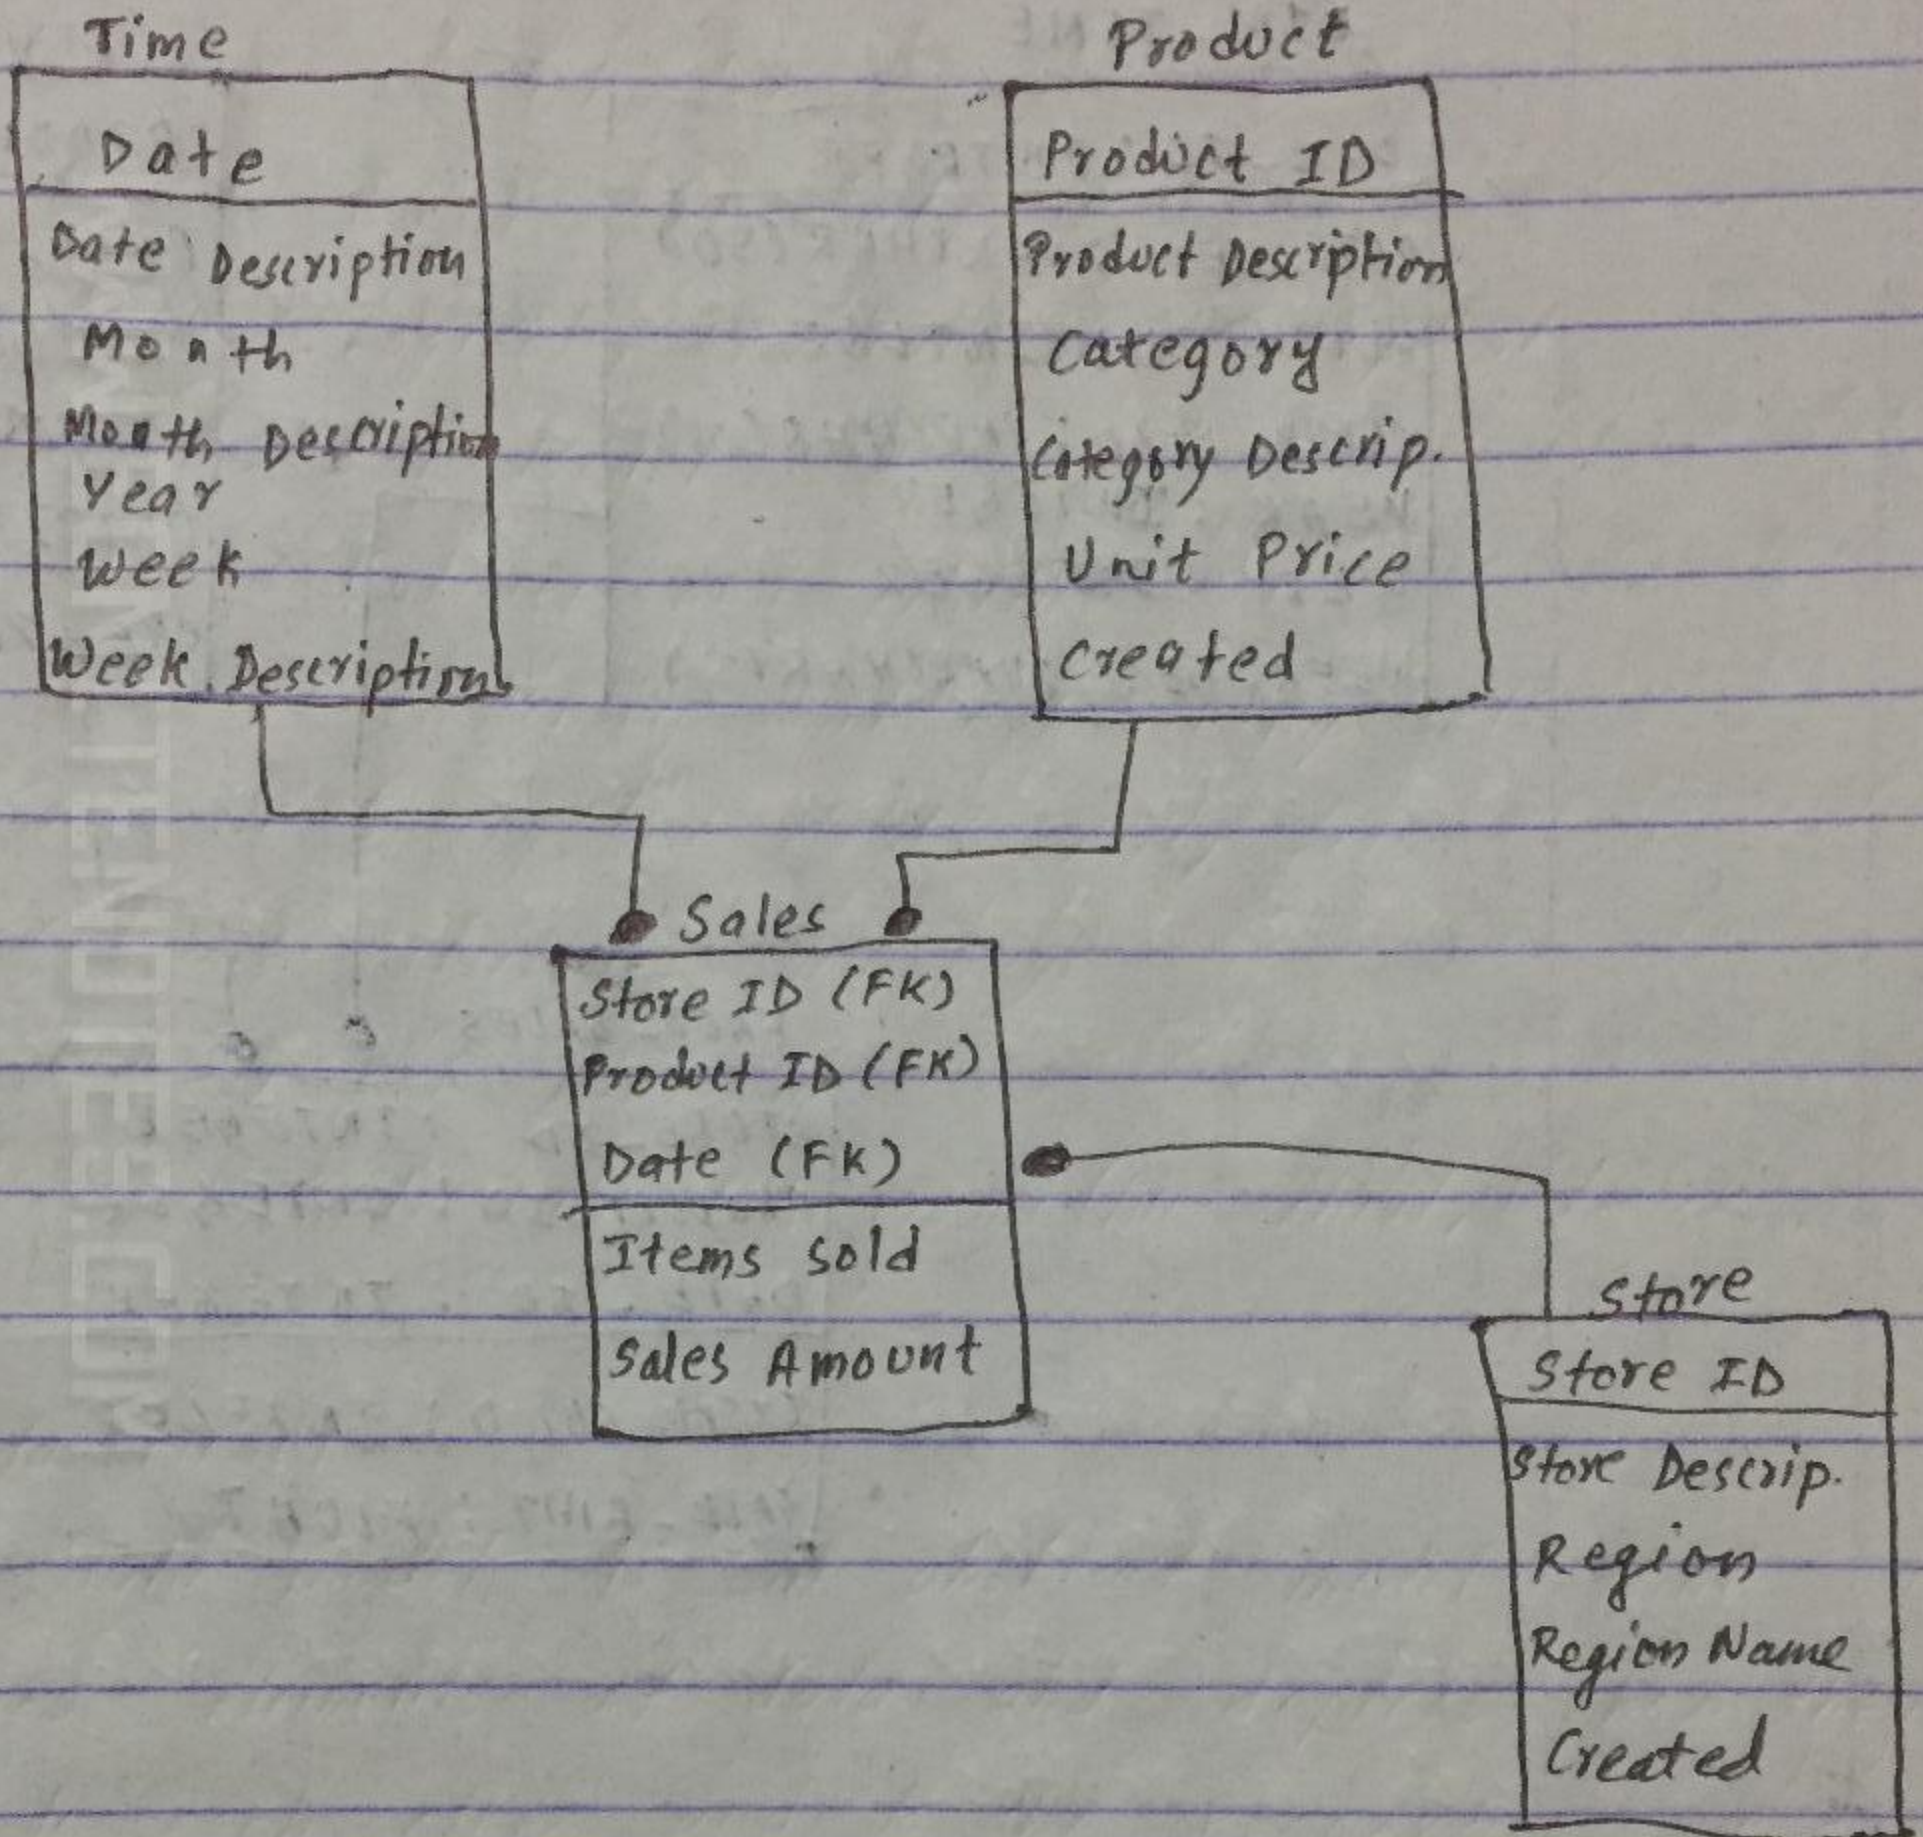 Time
Date
Date Description
Month
Month Description
Year
Week
Week Description
Product
Product ID
Product Description
Category
Category Descrip.
Unit Price
Created
Sales
Store ID (FK)
Product ID (FK)
Date (FK)
Items Sold
Sales Amount
Store
Store ID
Store Descrip.
Region
Region Name
Created